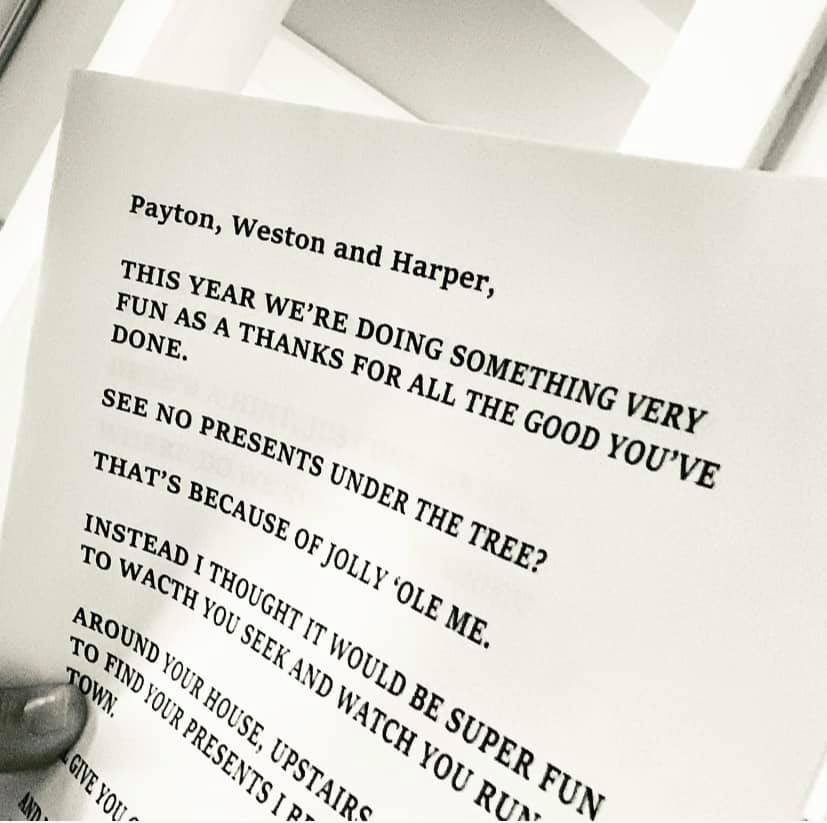 Payton, Weston and Harper,
THIS YEAR WE'RE DOING SOMETHING VERY
FUN AS A THANKS FOR ALL THE GOOD YOU'VE
DONE.
SEE NO PRESENTS UNDER THE TREE?
THAT'S BECAUSE OF JOLLY ‘OLE ME.
INSTEAD I THOUGHT IT WOULD BE SUPER FUN
TO WACTH YOU SEEK AND WATCH YOU RUN
AROUND YOUR HOUSE, UPSTAIRS
TO FIND YOUR PRESENTS I
TOWN.
GIVE YOU
AND